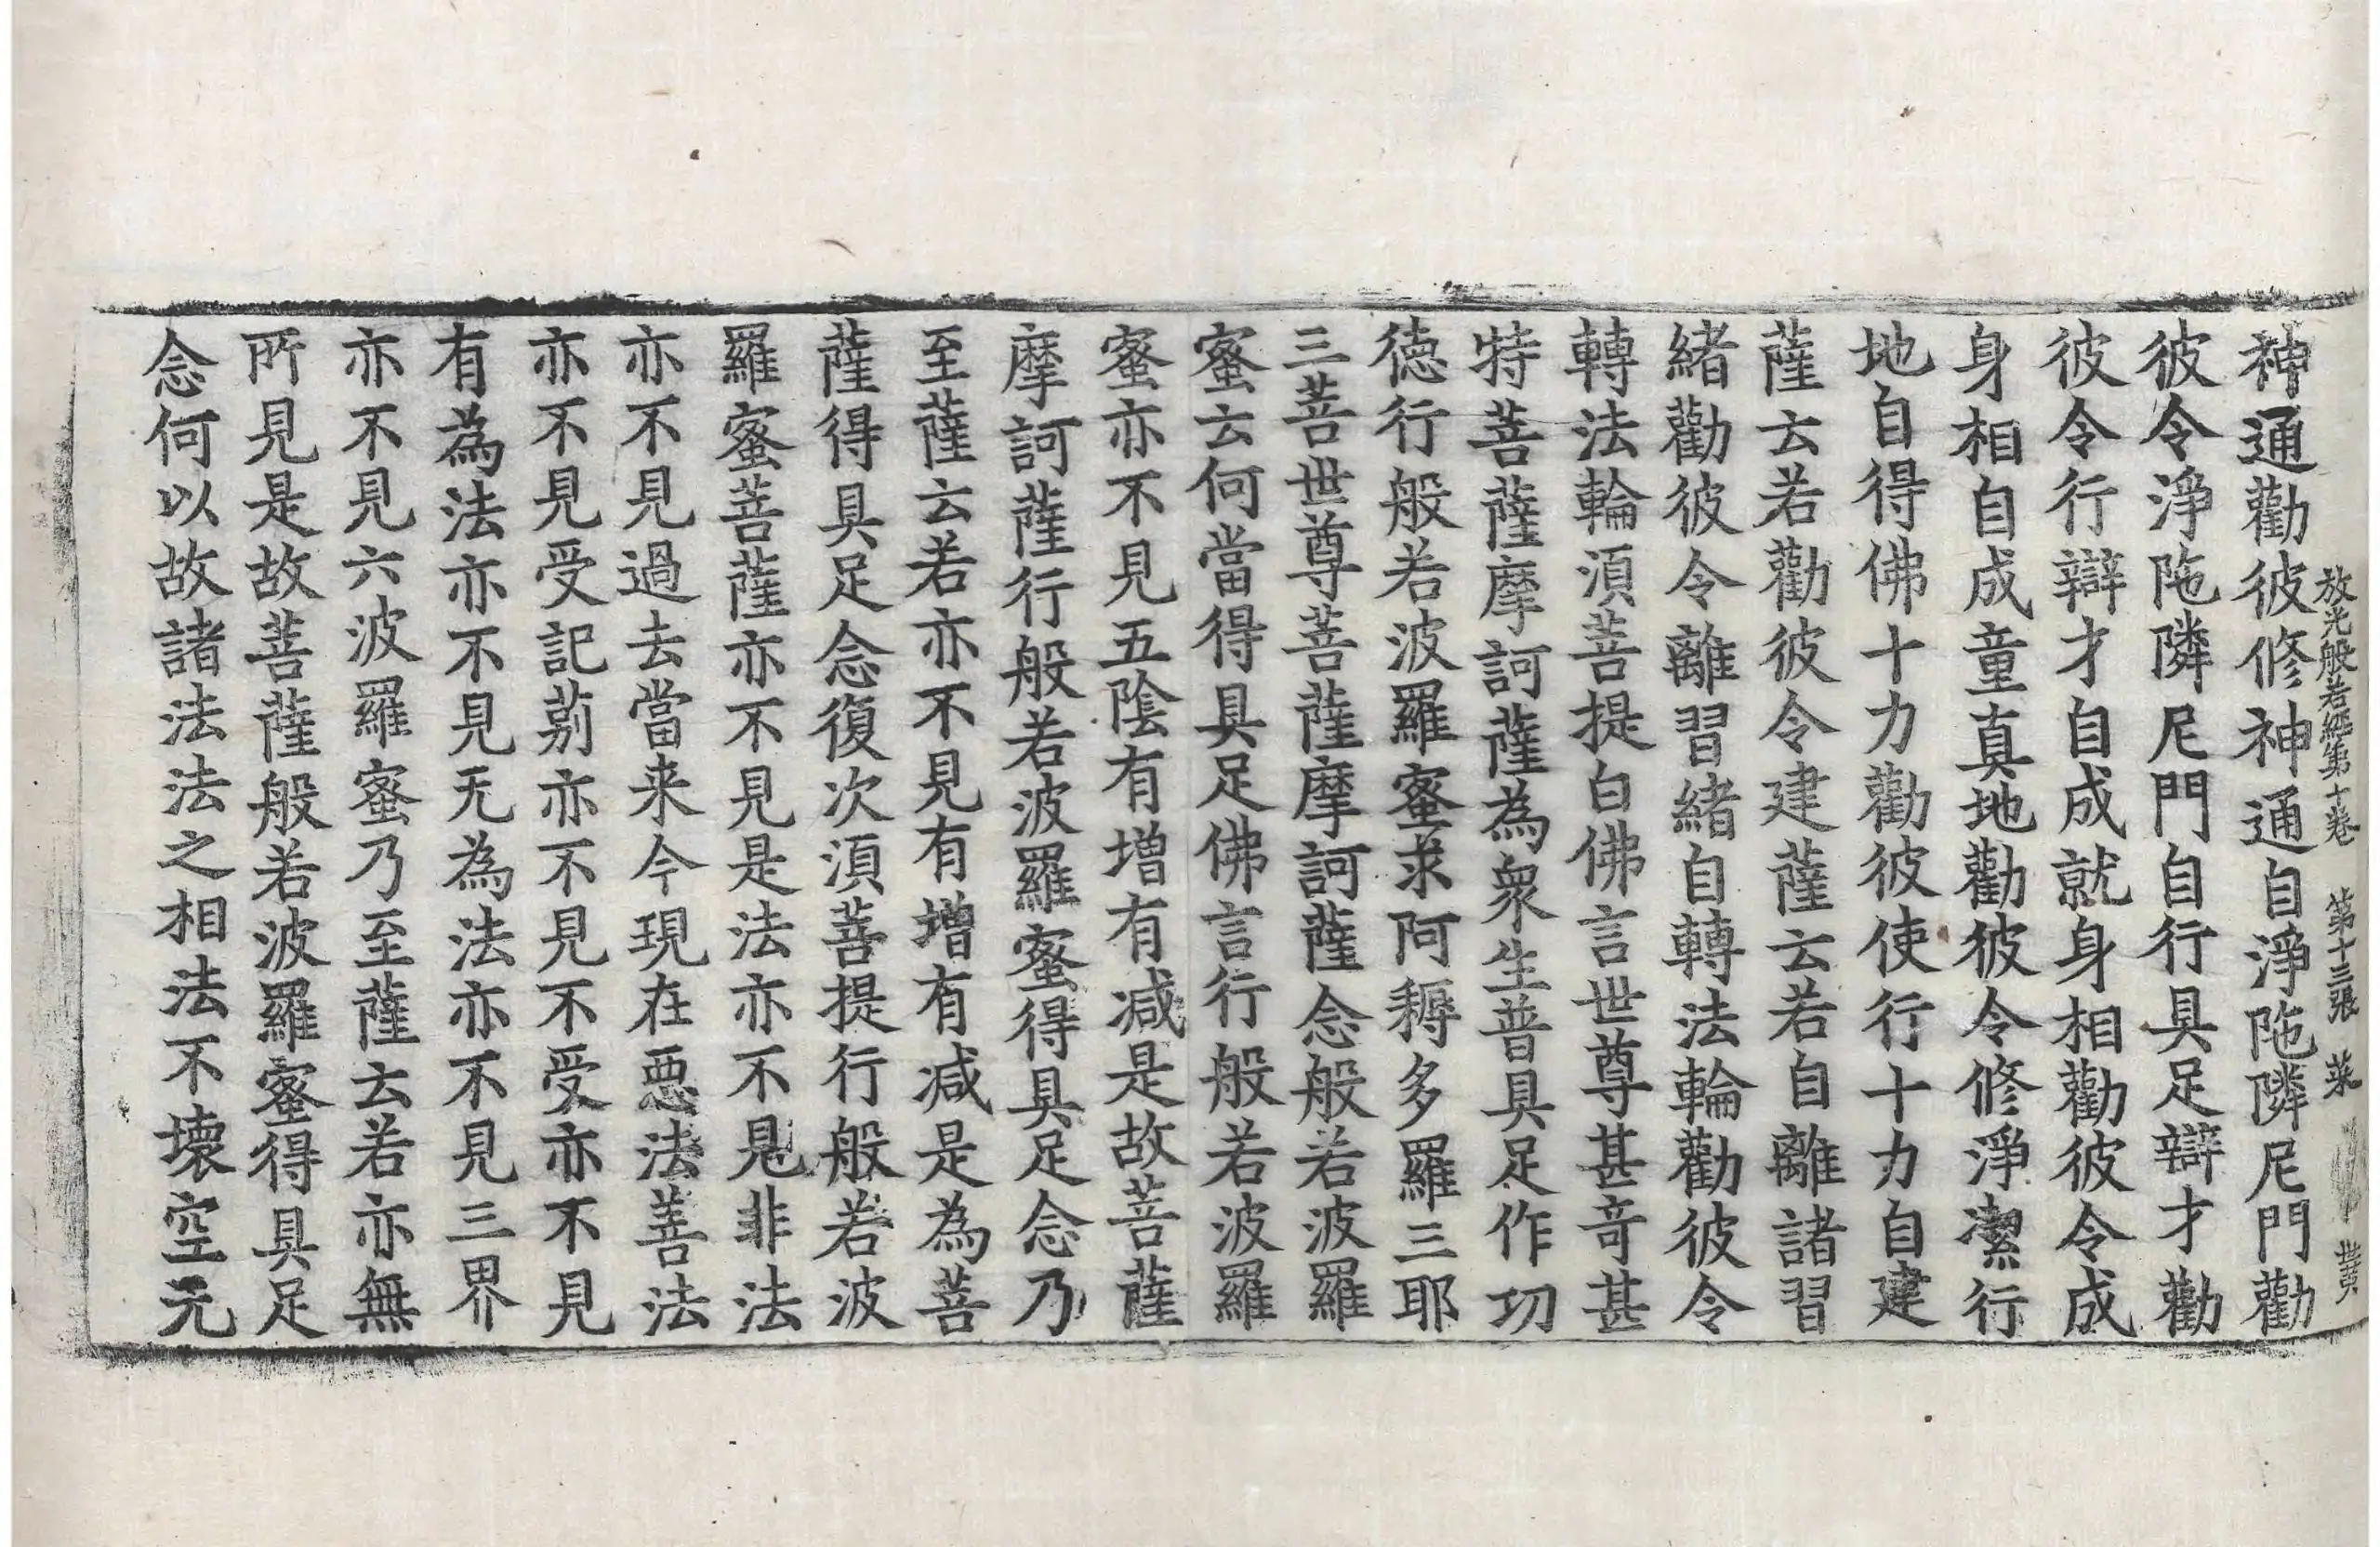 放光般若經第十卷 第十三張 菜
神通勸彼修神通自淨陁隣尼門勸
彼令淨陁隣尼門自行具足辯才勸
彼令行辯才自成就身相勸彼令成
身相自成童真地勸彼令修淨潔行
地自得佛十力勸彼使行十力自建
薩云若勸彼令建薩云若自離諸習
緒勸彼令離習緒自轉法輪勸彼令
轉法輪湏菩提白佛言世尊甚竒甚
特菩薩摩訶薩為衆生普具足作功
德行般若波羅蜜求阿耨多羅三耶
三菩世尊菩薩摩訶薩念般若波羅
蜜云何當得具足佛言行般若波羅
蜜亦不見五陰有增有减是故菩薩
摩訶薩行般若波羅蜜得具足念乃
至薩云若亦不見有增有减是為菩
薩得具足念復次湏菩提行般若波
羅蜜菩薩亦不見是法亦不見非法
亦不見過去當来今現在惡法善法
亦不見受記莂亦不見不受亦不見
有為法亦不見无為法亦不見三界
亦不見六波羅蜜乃至薩云若亦無
所見是故菩薩般若波羅蜜得具足
念何以故諸法法之相法不壞空无